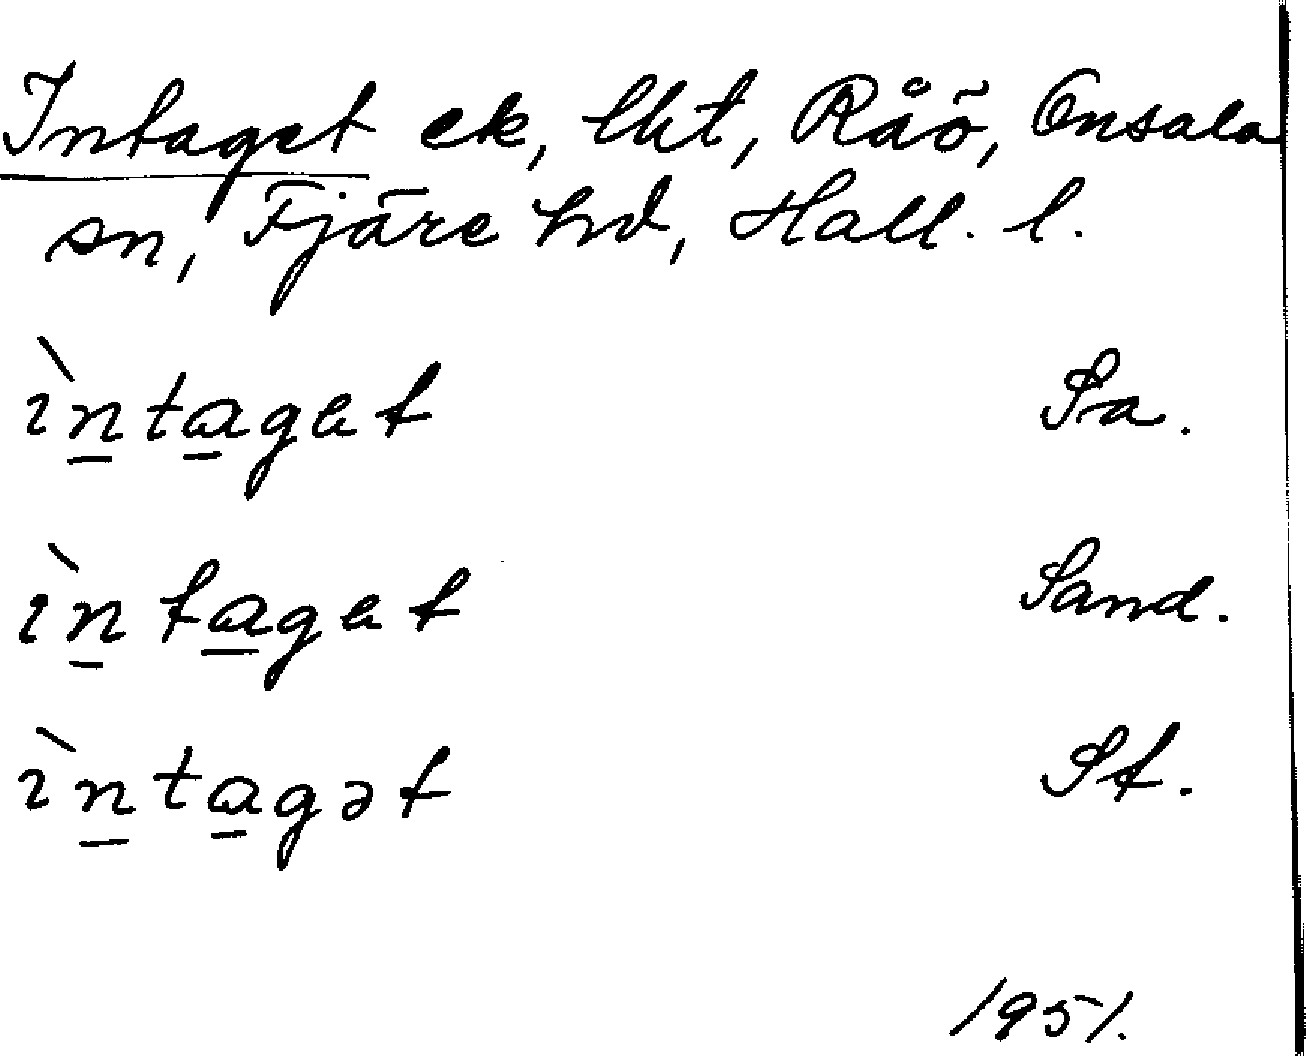 Intaget ek, lht, Råö, Onsala
sn, Fjäre hd, Hall. l.
ìn̲ta̲get Sa.
ìn̲ta̲get Sand.
ìn̲ta̲gət St.
1951.